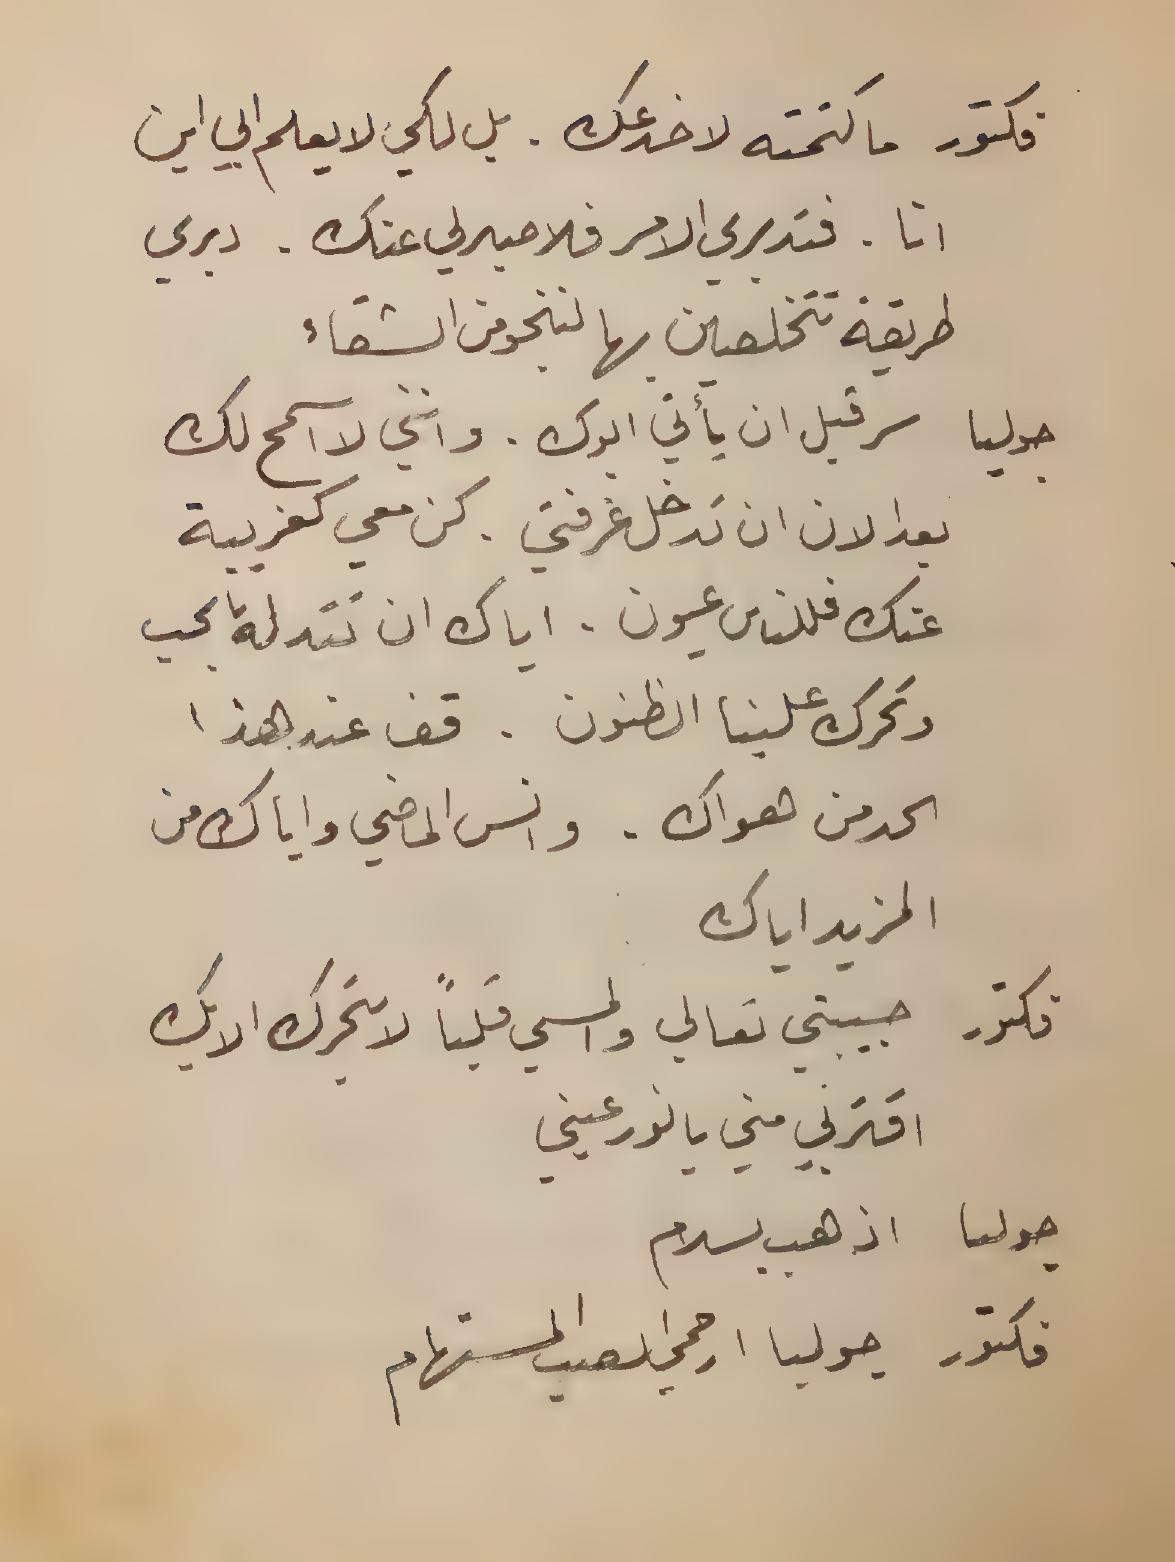 فكتور ما كتمته لاخدعك . بل لكي لا يعلم ابي اين
انا . فتدبري الامر فلا صبر لي عنك . دبري
طريقة تتخلصين بها لننجو من الشقاء
جوليا سر قبل ان يأتي ابوك . وانني لا اسمح لك
بعد الان ان تدخل غرفتي . كن معي كغريبة
عنك فللناس عيون . اياك ان تتدله بحب
وتحرك علينا الظنون . قف عند هذا
الحد من هواك . وانس الماضي واياك من
المزيد اياك
فكتور حبيبتي تعالي والمسي قلباً لا يتحرك الا بك
اقتربي مني يا نور عيني
جوليا اذهب بسلام
فكتور جوليا ارحمي الصب المستهام